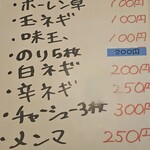 ・ホーレン草 100円
・玉ネギ 100円
・味玉 100円
・のり5枚 200円
・白ネギ 200円
・辛ネギ 250
・チャーシュー3枚 300円
・メンマ 250円